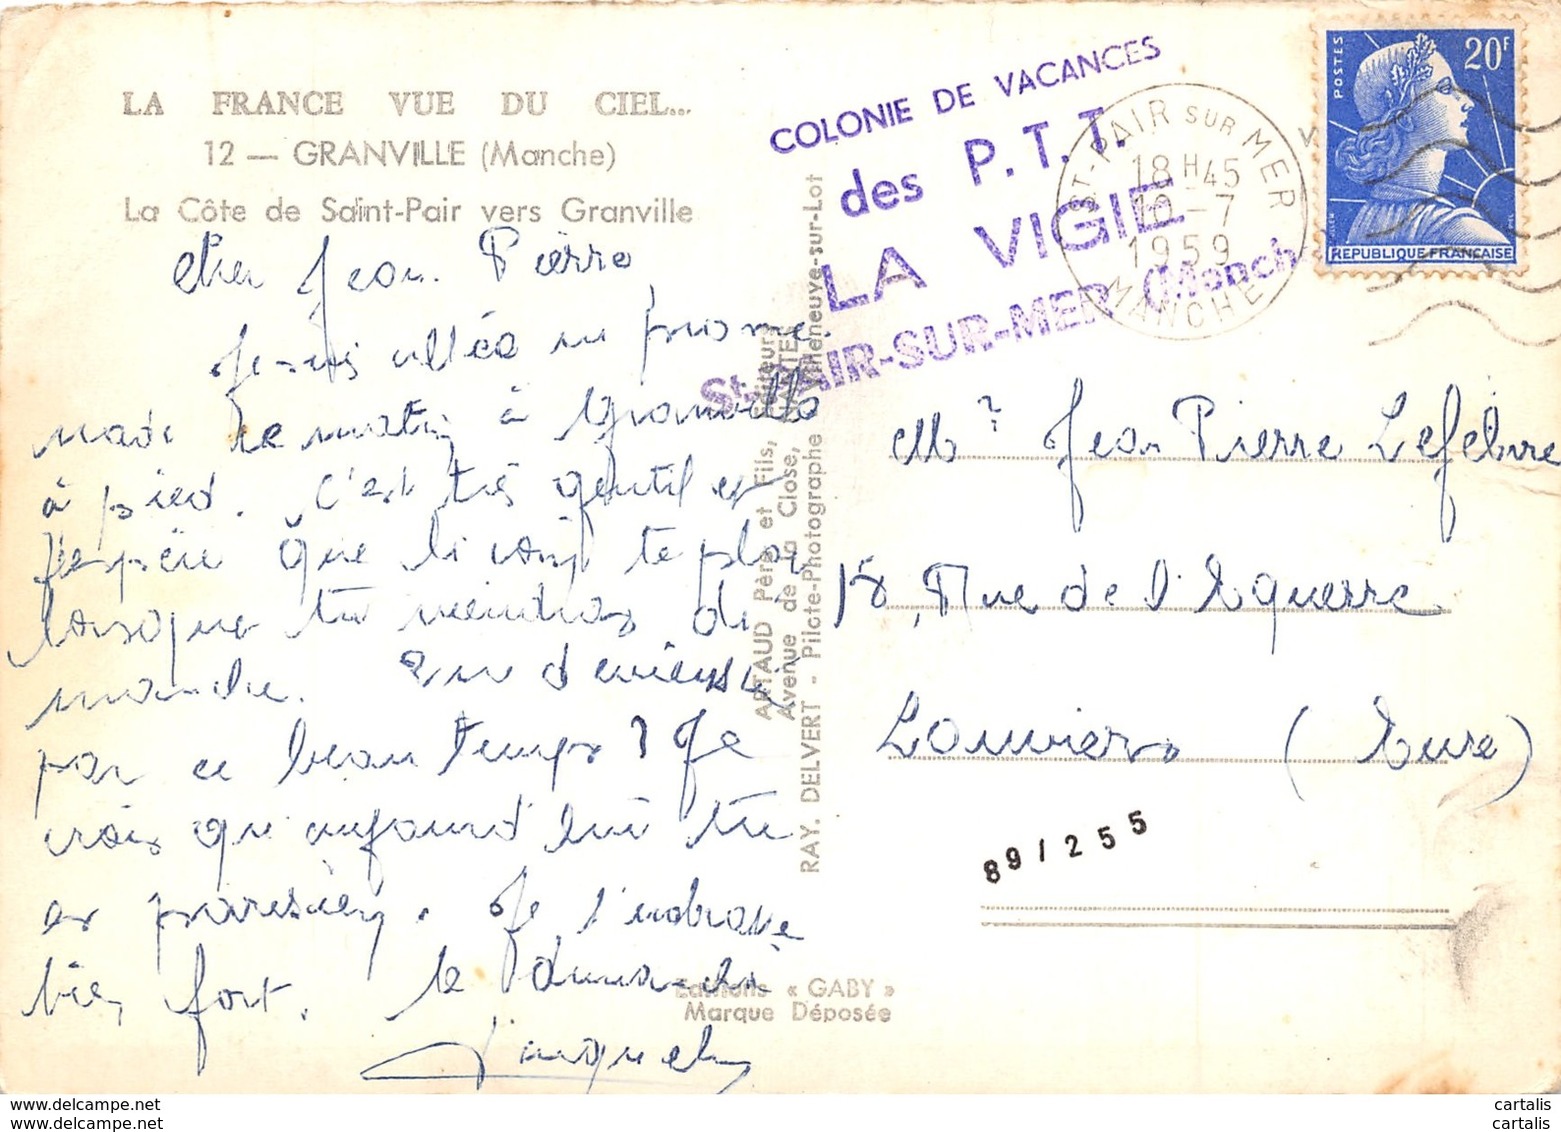 LA FRANCE VUE DU CIEL...
12 — GRANVILLE (Manche)
La Côte de Saint-Pair vers Granville
Cher Jean Pierre,
Je suis allée en prome-
nade ce matin à Granville
à pied. C'est très gentil et
j'espère que le coup te plai
lorsque tu viendras di
manche. Que deviens tu
par ce beau temps ? Je
crois que aujourd'hui tu
es parisien. Je t'embrasse
bien fort. le dimanche
Jacqueline
ARTAUD Père et Fils, Éditeurs
Avenue de la Close, NANTES
RAY. DELVERT - Pilote-Photographe Villeneuve-sur-Lot
Editions « GABY »
Marque Déposée
COLONIE DE VACANCES
des P.T.T.
LA VIGIE
St-PAIR-SUR-MER (Manche
ST-PAIR SUR MER
18 H 45
10 - 7
1959
MANCHE
POSTES
20F
REPUBLIQUE FRANÇAISE
Mr Jean Pierre Lefebvre
18, Rue de l'Equerre
Louviers (Eure)
89/255
cartalis
cartalis
www.delcampe.net
www.delcampe.net